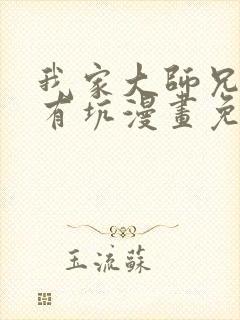 我家大師兄
有坑漫畫免
玉流蘇